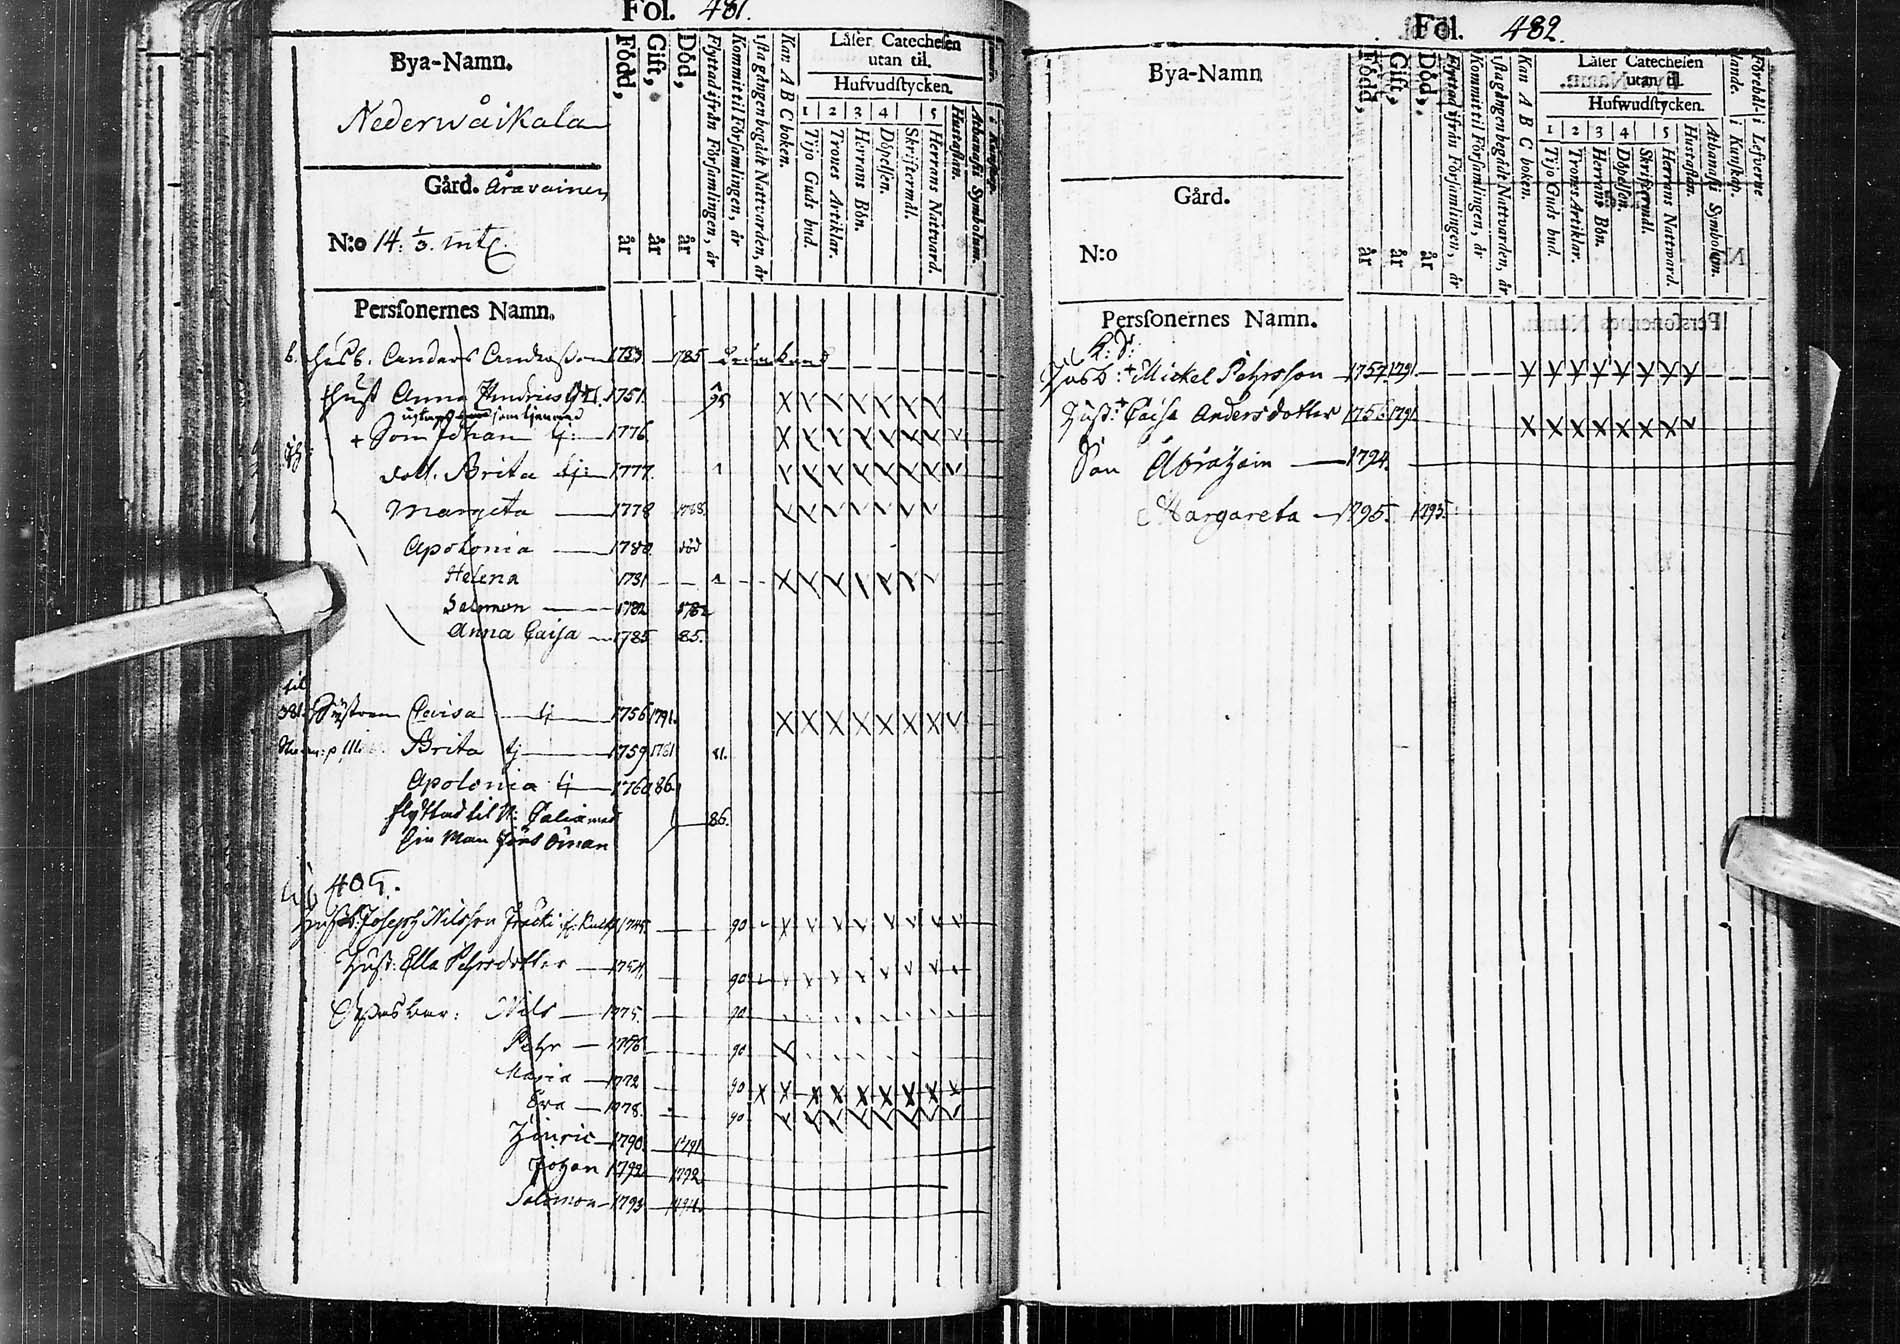 Fol. 481.
Bya-Namn.
Nederwåikala
Gård. Åravainen
N:o 14: 1/3. mtl.
Född, år
Gift, år
Död, år
Flyttad ifrån Församlingen, år
Kommit til Församlingen, år
sista gången begådt Nattvarden, år
Kan A B C boken.
Läser Catechesen
utan til.
Hufvudstycken.
1 2 3 4 5
Tijo Guds bud.
Trones Artiklar.
Herrans Bön.
Döpelsen.
Skriftermål.
Herrans Nattvard.
Hustaflan.
Athanasii Symbolum.
Personernes Namn.
b. Husb. Anders Andersson 1753 1785
Hust Anna Hindrics dtr. 1751. 95
+ Son Johan 1776
dott. Brita 1777. 1
Margeta 1778 1788.
Apolonia 1780 död
Helena 1781 1
Salomon 1782 1782
Anna Caisa 1785 85.
til
381. Systren Caisa 1756 1791.
Brita 1759 1781 81.
Apolonia 1760 86
flyttad til N: Calix med 86.
sin Man
405.
Husb. Joseph Nilsson 1745 90
Hust: Ella Pehrsdotter 1754 90
Nils 1775. 90
Pehr 1776 90
Maria 1772 90
Eva 1778. 90
Hinric 1790. 1791
Johan 1792 1792
Salomon 1793
Fol. 482.
Bya-Namn
Gård.
N:o
Född, år
Gift, år
Död, år
Flyttad ifrån Församlingen, år
Kommit til Församlingen, år
sista gången begådt Nattvarden, år
Kan A B C boken.
Läser Catechesen
utan til.
Hufwudstycken.
1 2 3 4 5
Tijo Guds bud.
Trones Artiklar.
Herrans Bön.
Döpelsen.
Skriftermål.
Herrans Nattvard.
Hustaflan.
Athanasii Symbolum.
Förehål- i Lefverne
lande. i Kunskap.
Personernes Namn.
Husb: + Mickel Pehrsson 1757 1791
Hust: + Caisa Andersdotter 1756 1791
Son Abraham 1794.
Margareta 1795. 1795.